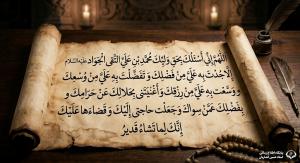 اَللّهُمَّ إِنّی أَسْئَلُکَ بِحَقِّ وَلِیِّکَ مُحَمَّدِ بْنِ عَلِیٍّ التَّقِیِّ الْجَوادِ علیه السلام
إِلّا جُدْتَ بِهِ عَلَیَّ مِنْ فَضْلِکَ وَ تَفَضَّلْتَ بِهِ عَلَیَّ مِنْ وُسْعِکَ
وَ وَسَّعْتَ بِهِ عَلَیَّ مِنْ رِزْقِکَ وَ أَغْنَیْتَنی بِحَلالِکَ عَنْ حَرامِکَ وَ
بِفَضْلِکَ عَمَّنْ سِواکَ وَ جَعَلْتَ حاجَتی إِلَیْکَ وَ قَضاءَها عَلَیْکَ
إِنَّکَ لِما تَشاءُ قَدیرٌ